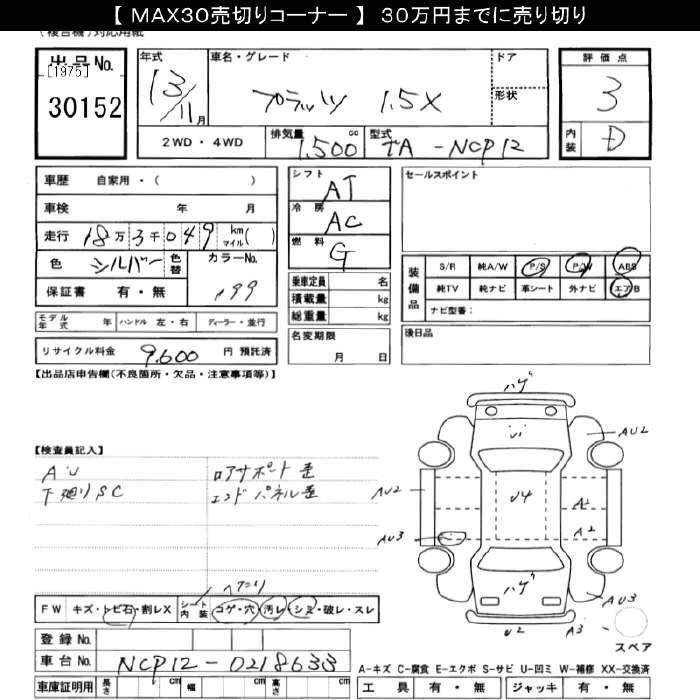 【 MAX30売切りコーナー 】 30万円までに売り切り
(複合機)対応用紙
出品No.
[1975]
30152
年式
13/11月
車名・グレード
プラッツ 1.5X
ドア
形状
評価点
3
内装
D
2WD・4WD
排気量
1,500 cc
型式
TA-NCP12
車歴 自家用・( )
車検 年 月
走行 18万3千049 km マイル( )
色 シルバー 色替
カラーNo.
199
保証書 有・無
シフト
AT
冷房
AC
燃料
G
乗車定員 名
積載量 kg
総重量 kg
セールスポイント
装備品
S/R 純A/W P/S P/W ABS
純TV 純ナビ 革シート 外ナビ エアB
ナビ型番:
モデル年式 年 ハンドル 左・右 ディーラー・並行
リサイクル料金 9,600 円 預託済
名変期限
月 日
後日品
【出品店申告欄(不良箇所・欠品・注意事項等)】
【検査員記入】
AU
下廻りSC
ロアサポート歪
エンドパネル歪
ハゲ
U1
AU2
AU2
U4
A2
AU3
A2
ハゲ
AU3
U2
A3
スペア
FW キズ・トビ石・割レX
シート内装 コゲ・穴・汚レ・シミ・破レ・スレ
登録No.
車台No. NCP12-0218633
車庫証明用 長さ cm 幅 cm 高さ cm
A-キズ C-腐食 E-エクボ S-サビ U-凹ミ W-補修 XX-交換済
工具 有・無 ジャッキ 有・無